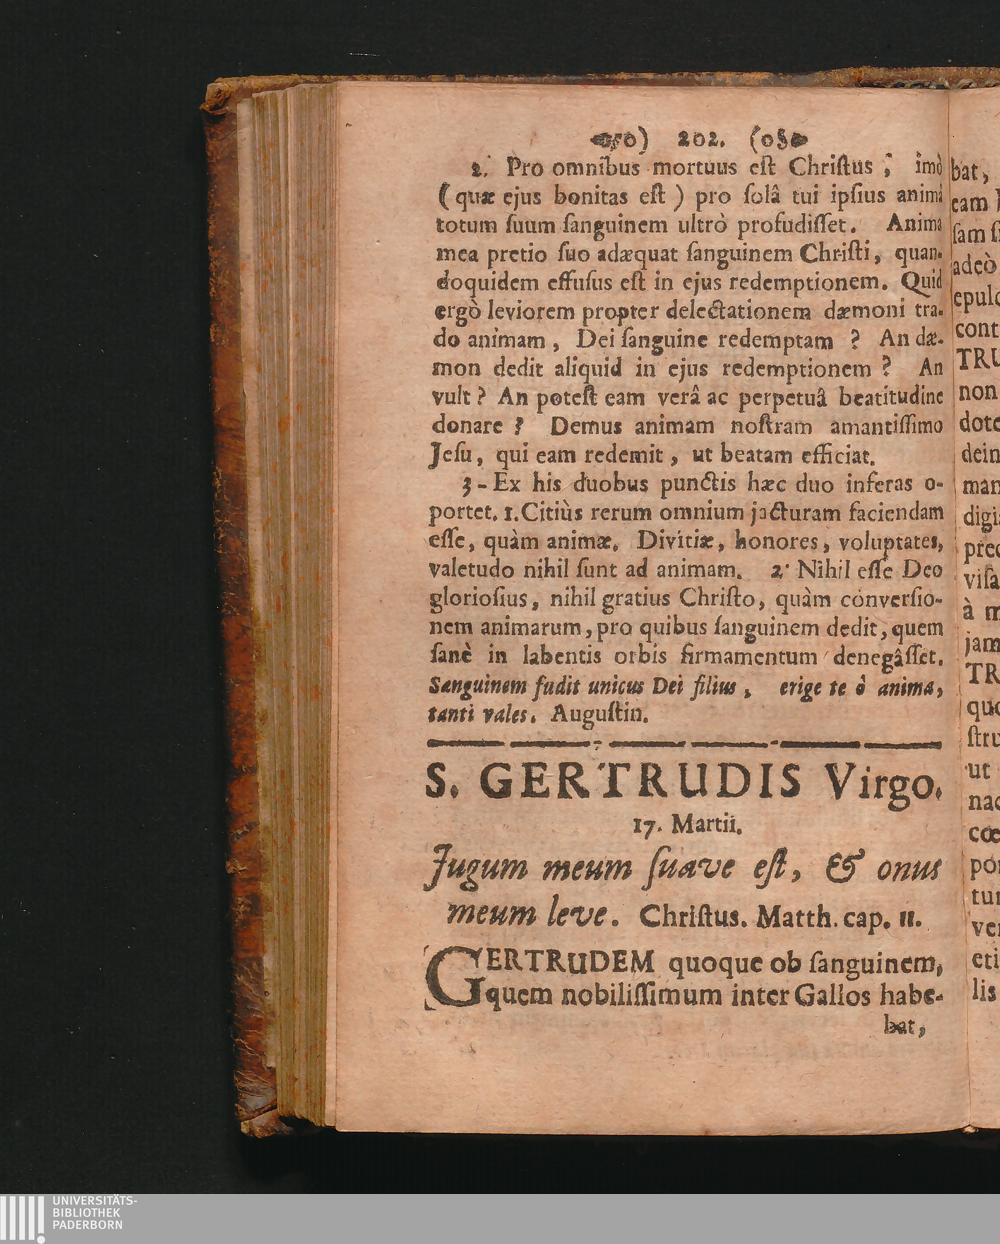 202.
2. Pro omnibus mortuus eſt Chriſtus; imò
(quæ ejus bonitas eſt) pro ſolâ tui ipſius animâ
totum ſuum ſanguinem ultrò profudiſſet. Anima
mea pretio ſuo adæquat ſanguinem Chriſti, quan-
doquidem effuſus eſt in ejus redemptionem. Quid
ergò leviorem propter delectationem dæmoni tra-
do animam, Dei ſanguine redemptam? An dæ-
mon dedit aliquid in ejus redemptionem? An
vult? An poteſt eam verâ ac perpetuâ beatitudine
donare? Demus animam noſtram amantiſſimo
Jeſu, qui eam redemit, ut beatam efficiat.
3- Ex his duobus punctis hæc duo inferas o-
portet. 1. Citiùs rerum omnium jacturam faciendam
eſſe, quàm animæ. Divitiæ, honores, voluptates,
valetudo nihil ſunt ad animam. 2. Nihil eſſe Deo
glorioſius, nihil gratius Chriſto, quàm converſio-
nem animarum, pro quibus ſanguinem dedit, quem
ſanè in labentis orbis firmamentum denegâſſet.
Sanguinem fudit unicus Dei filius, erige te ô anima,
tanti vales. Auguſtin.
S. GERTRUDIS Virgo.
17. Martii.
Jugum meum ſuave eſt, & onus
meum leve. Chriſtus. Matth. cap. 11.
GERTRUDEM quoque ob ſanguinem,
quem nobiliſſimum inter Gallos habe-
bat,
bat,
eam
adeò
cont
non
dein
à
jam
ut
lis
UNIVERSITÄTS-
BIBLIOTHEK
PADERBORN